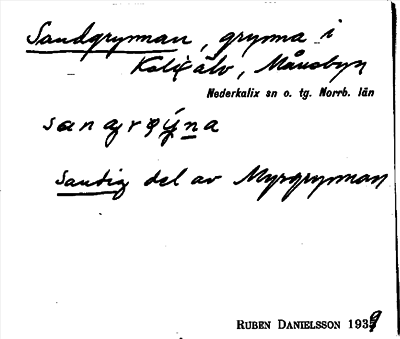 Sandgrynnan, grynna i
Kalix älv, Månsbyn
Nederkalix sn o. tg. Norrb. län
Sandig del av Myrgrynnan
RUBEN DANIELSSON 1939